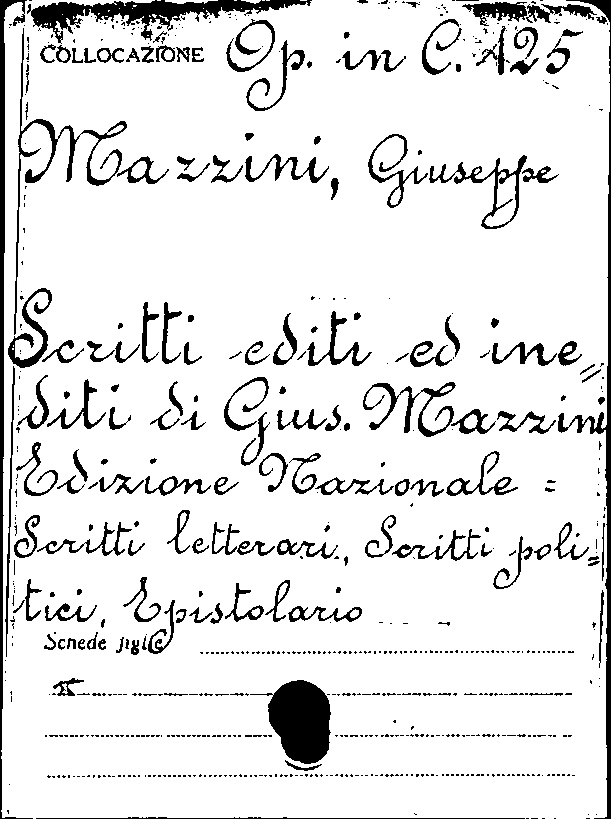 COLLOCAZIONE Op. in C. 125
Mazzini, Giuseppe
Scritti editi ed ine=
diti di Gius. Mazzini
Edizione Nazionale =
Scritti letterari, Scritti poli=
tici, Epistolario
Schede figlie